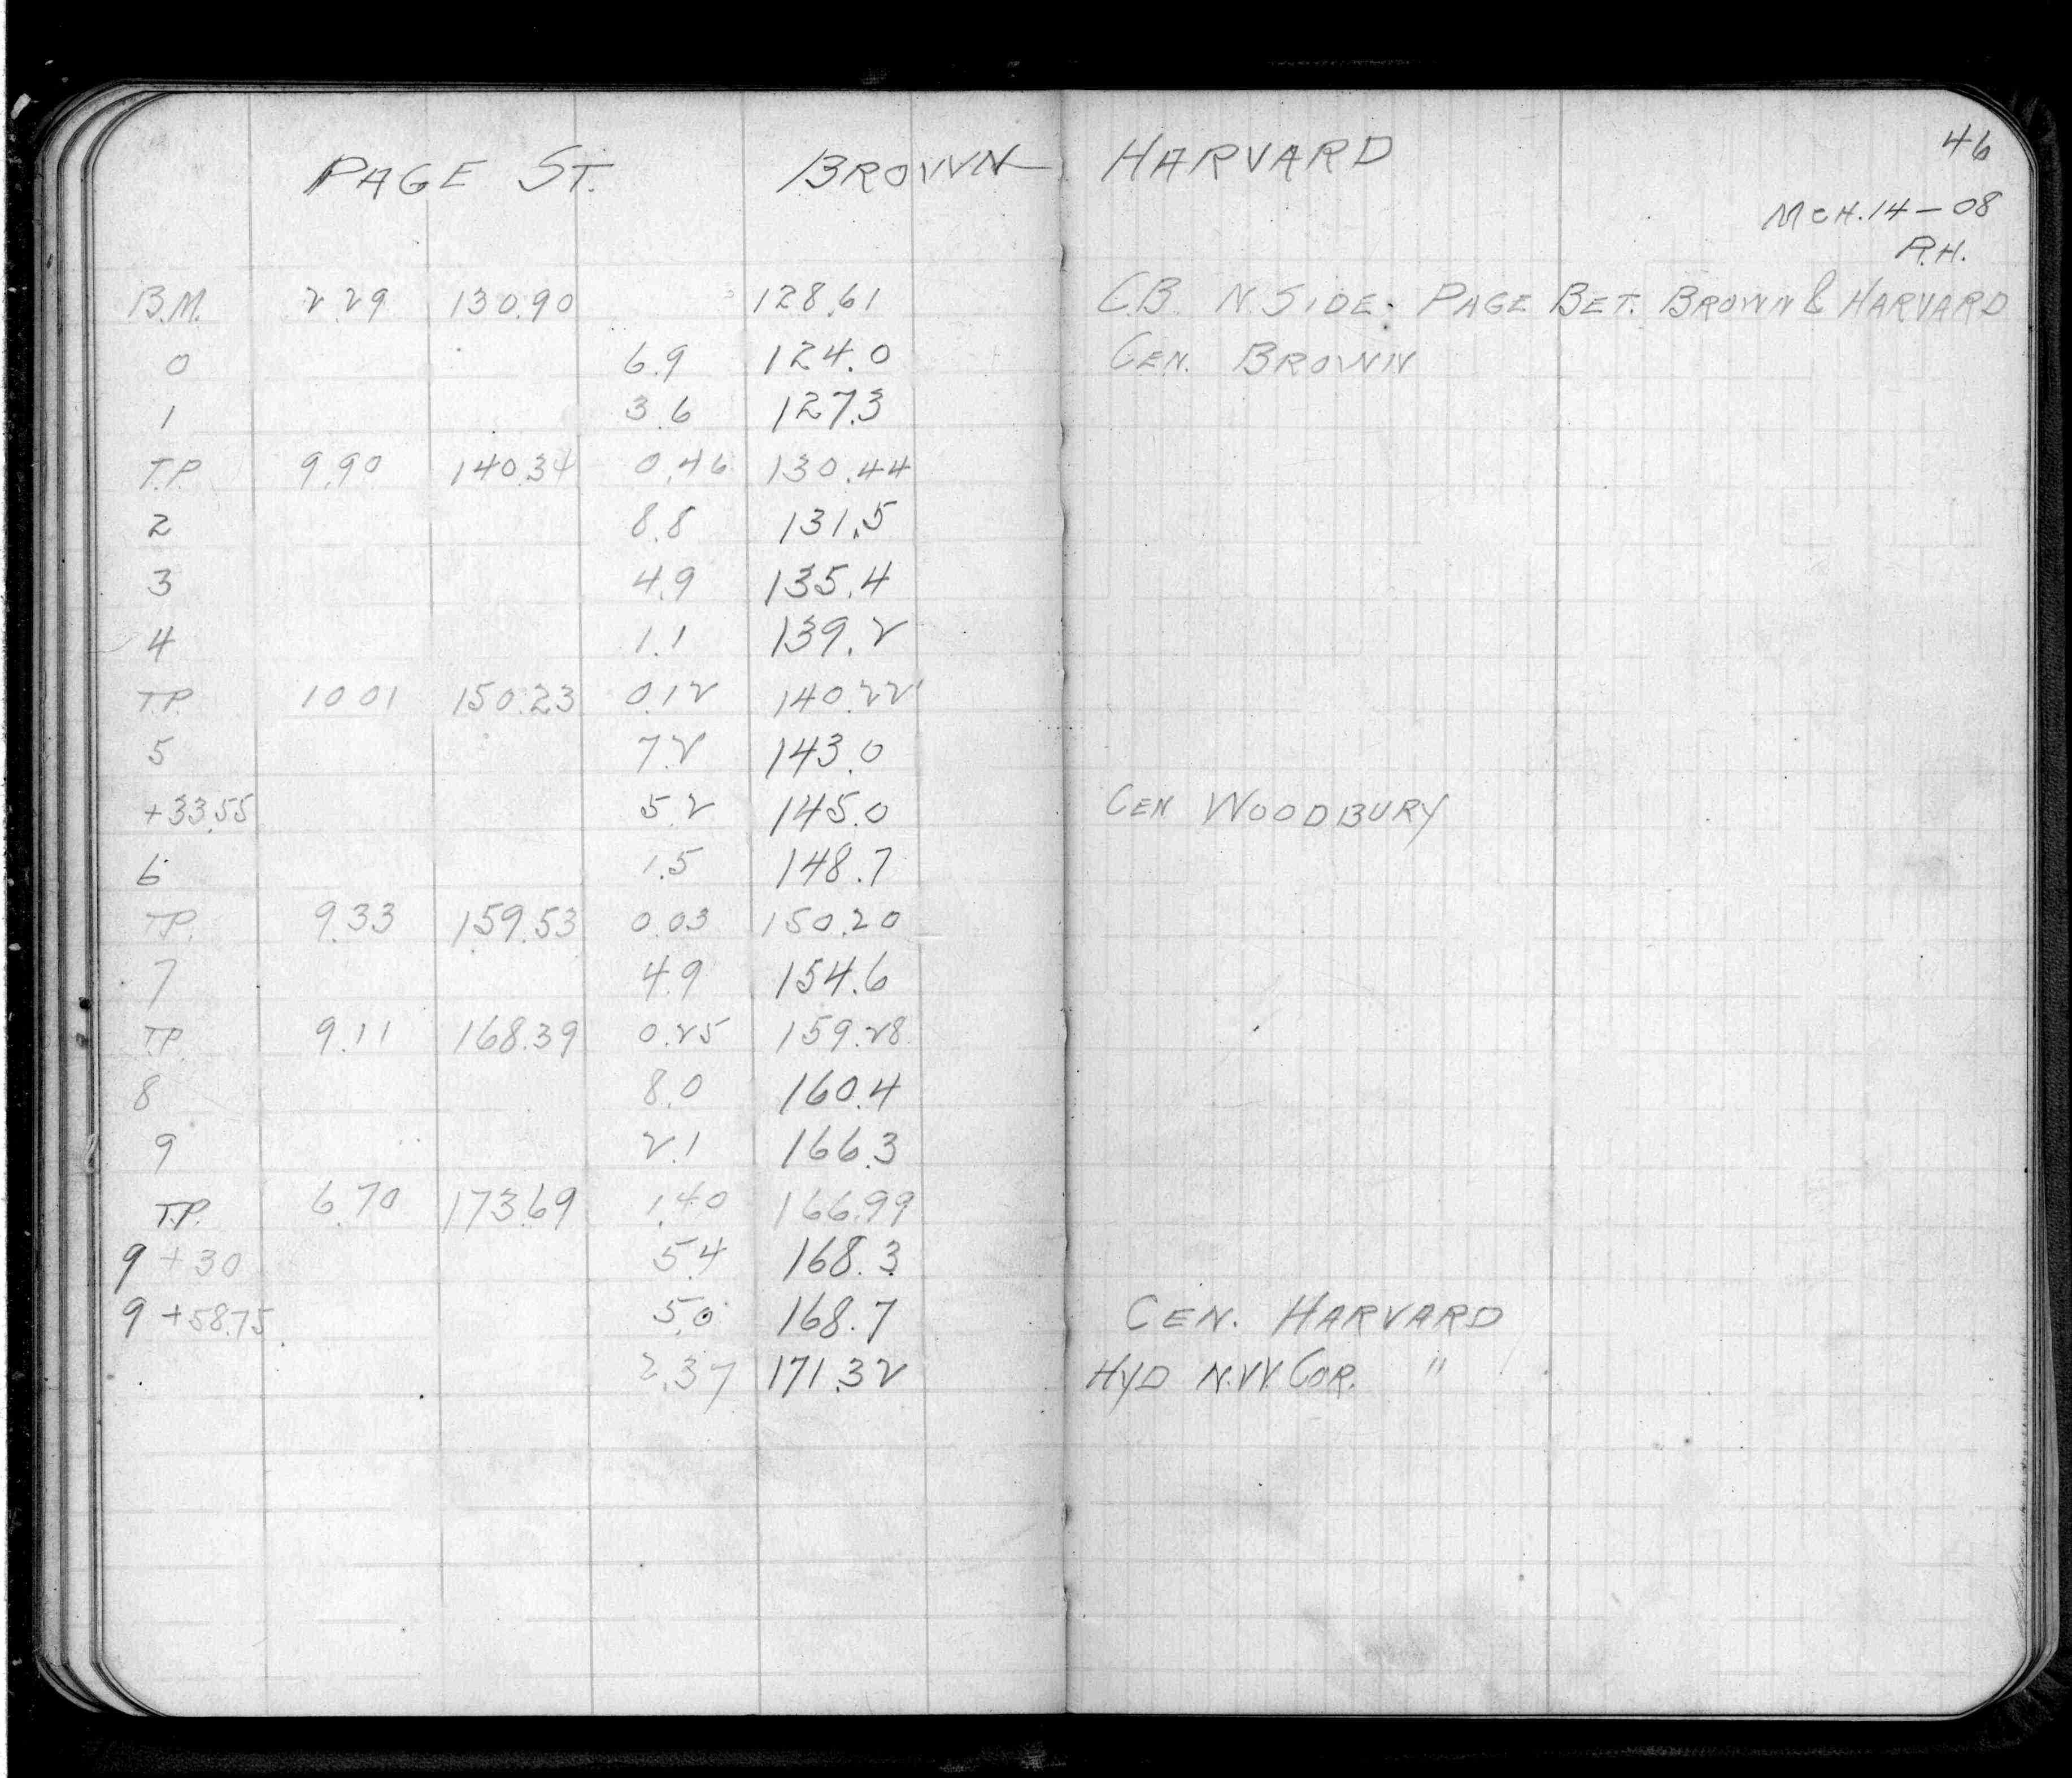 PAGE ST. BROWN — HARVARD 46
MCH. 14 – 08
R.H.
B.M. 2.29 130.90 128.61 C.B. N. SIDE. PAGE BET. BROWN & HARVARD
0 6.9 124.0 CEN. BROWN
1 3.6 127.3
T.P. 9.90 140.34 0.46 130.44
2 8.8 131.5
3 4.9 135.4
4 1.1 139.2
T.P. 10 01 150.23 0.12 140.22
5 7.2 143.0
+33.55 5.2 145.0 CEN WOODBURY
6 1.5 148.7
T.P. 9.33 159.53 0.03 150.20
7 4.9 154.6
T.P. 9.11 168.39 0.25 159.28
8 8.0 160.4
9 2.1 166.3
T.P. 6.70 173.69 1.40 166.99
9 +30 5.4 168.3
9 +58.75 5.0 168.7 CEN. HARVARD
2.37 171.32 HYD N.W. COR. "